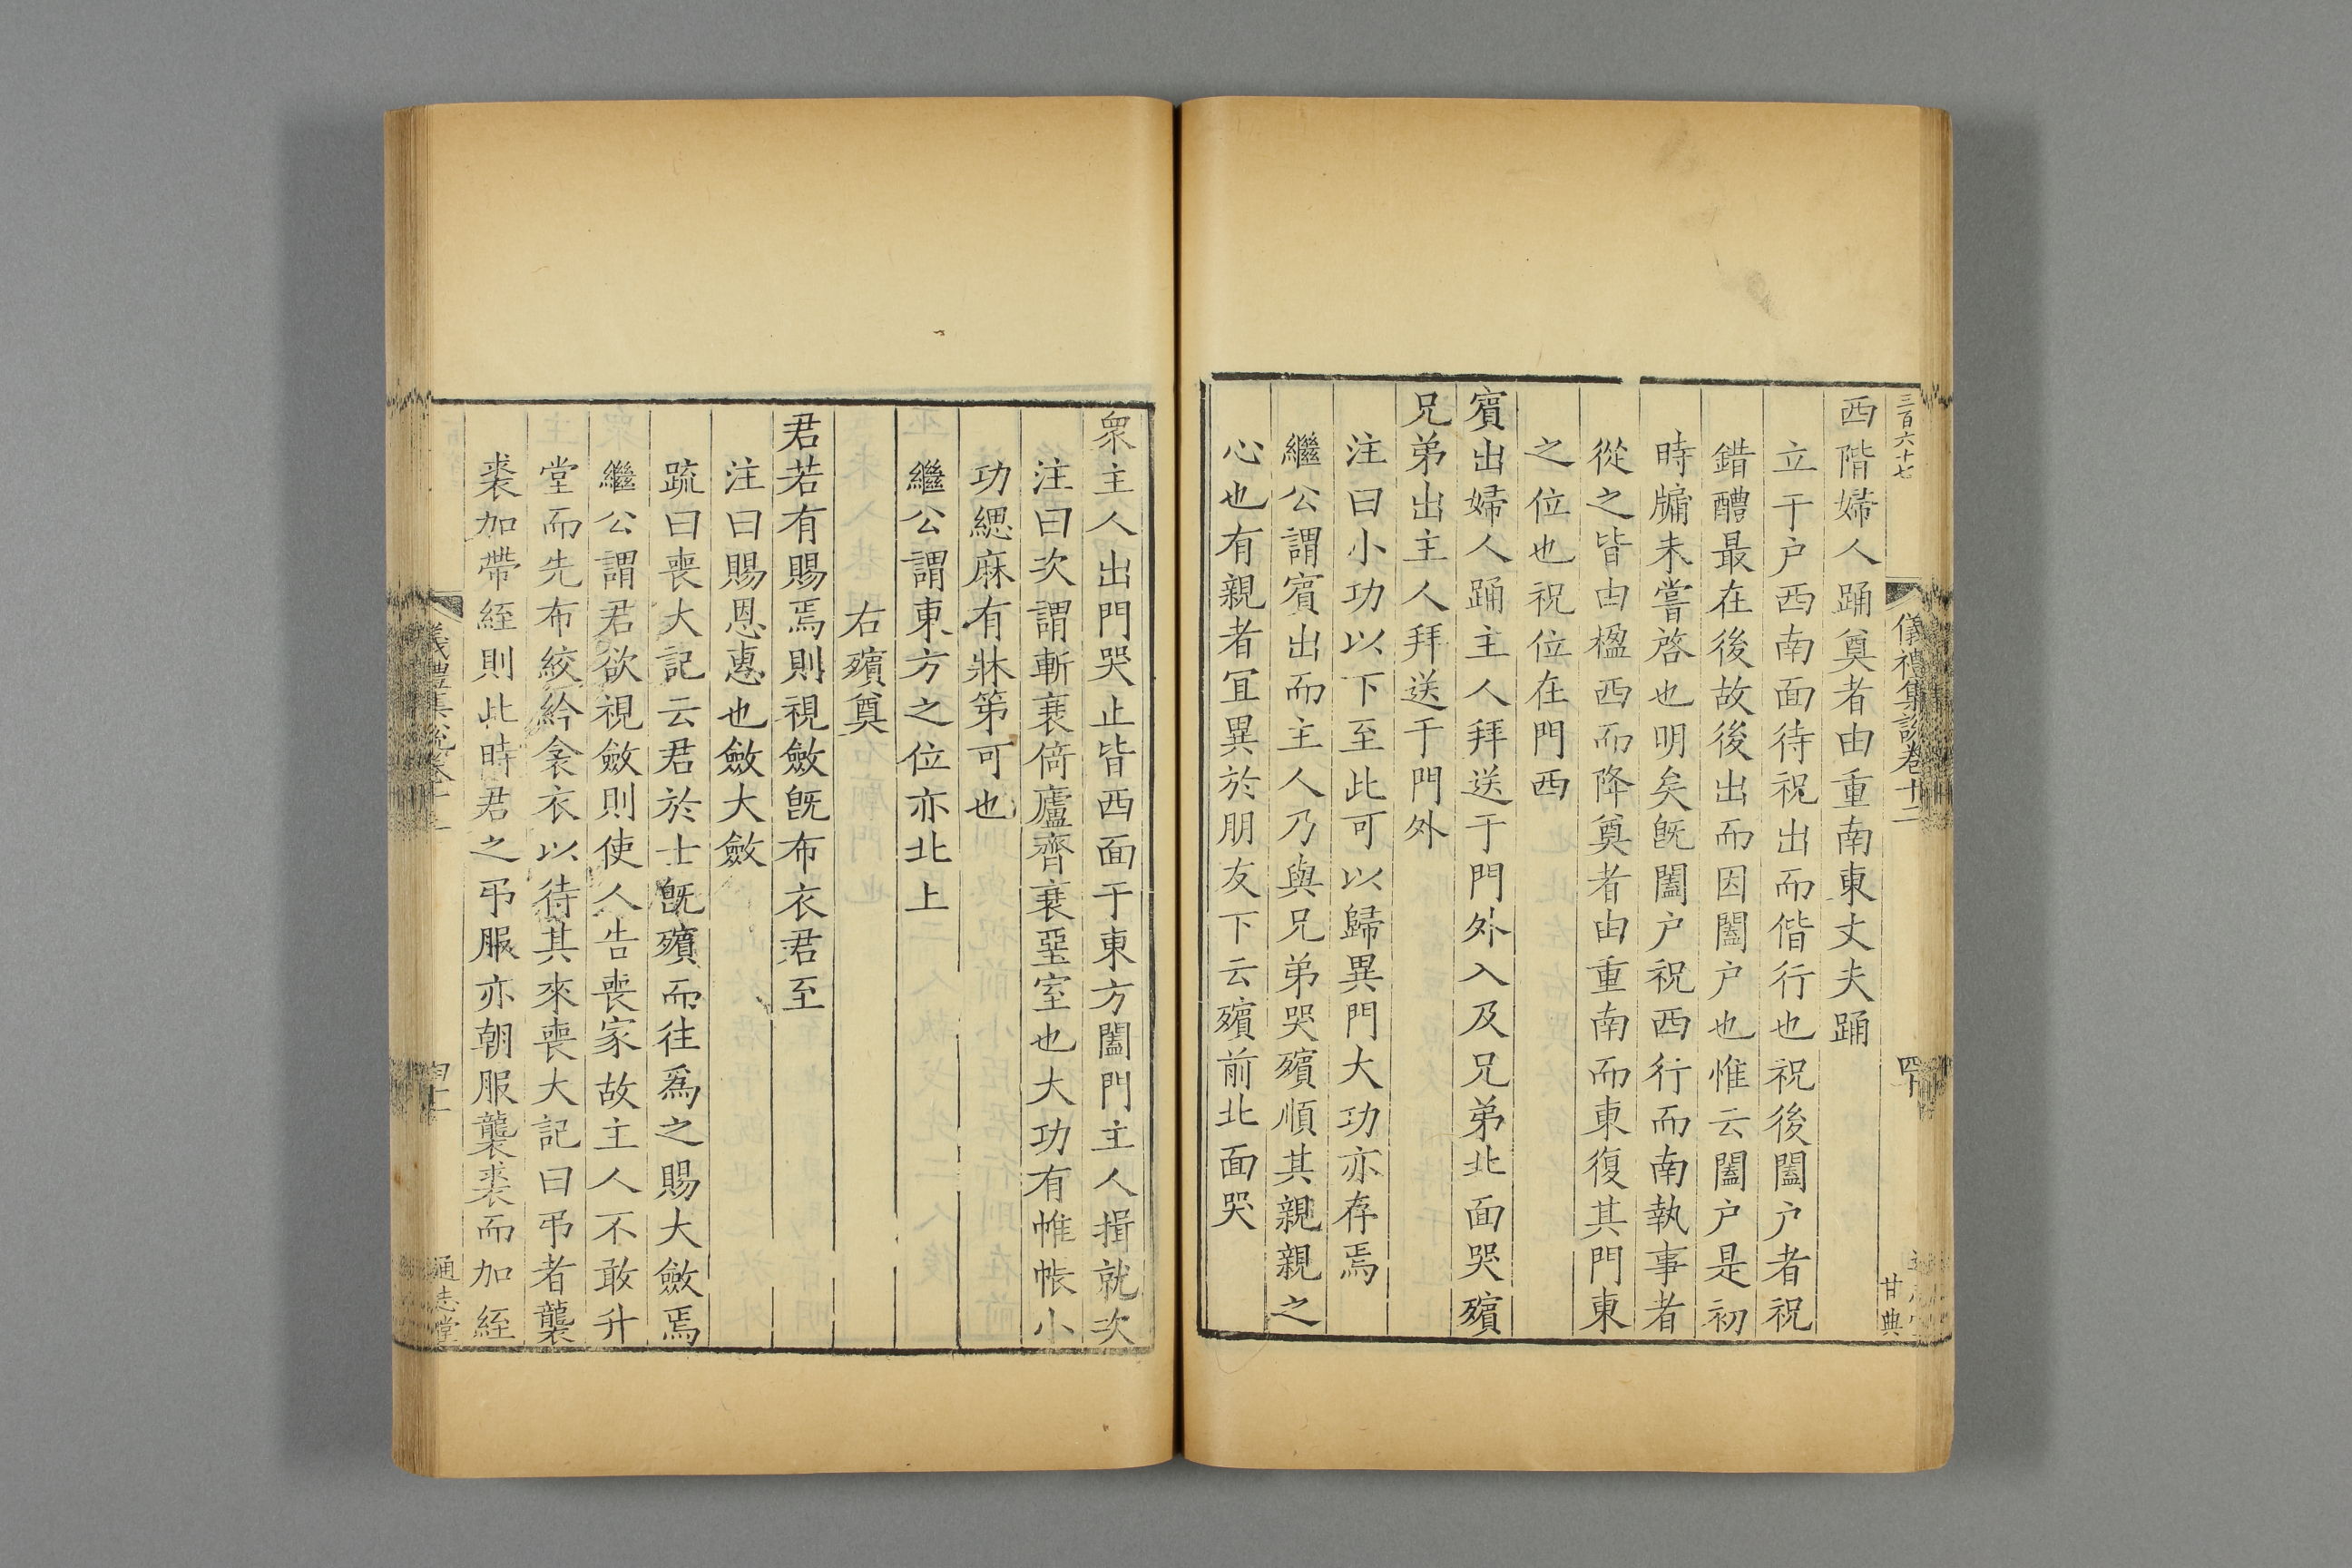 三百六十七
儀禮集說卷十二
四十
甘典
西階婦人踊奠者由重南東丈夫踊
立于户西南面待祝出而偕行也祝後闔户者祝
錯醴最在後故後出而因闔户也惟云闔户是初
時牖未嘗啓也明矣旣闔户祝西行而南執事者
從之皆由楹西而降奠者由重南而東復其門東
之位也祝位在門西
賓出婦人踊主人拜送于門外入及兄弟北面哭殯
兄弟出主人拜送于門外
注曰小功以下至此可以歸異門大功亦存焉
繼公謂賓出而主人乃與兄弟哭殯順其親親之
心也有親者冝異於朋友下云殯前北面哭
衆主人出門哭止皆西面于東方闔門主人揖就次
注曰次謂斬衰倚廬齊衰堊室也大功有帷帳小
功緦麻有牀笫可也
繼公謂東方之位亦北上
右殯奠
君若有賜焉則視斂旣布衣君至
注曰賜恩惠也斂大斂
疏曰喪大記云君於士旣殯而往爲之賜大斂焉
繼公謂君欲視斂則使人告喪家故主人不敢升
堂而先布絞紟衾衣以待其來喪大記曰弔者襲
裘加帶絰則此時君之弔服亦朝服襲裘而加絰
儀禮集說卷十二
通志堂